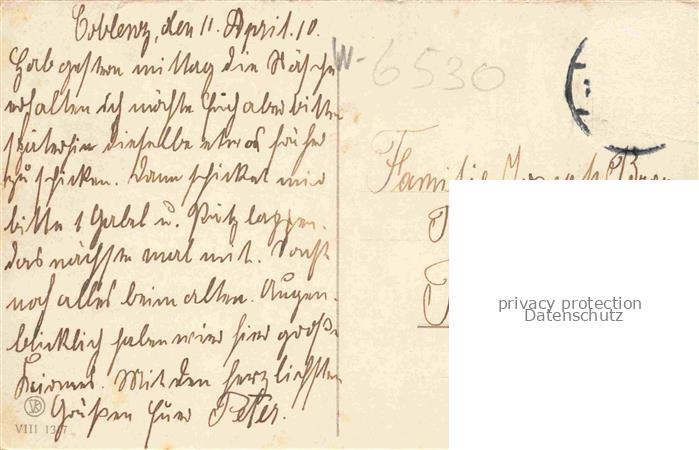 Coblenz, den 11. April. 10.
Hab gestern mittag die Wäsche
erhalten ich möchte Euch aber bitten
späterhin dieselbe etwas früher
zu schicken. Dann schicket mir
bitte 1 Gabel u. Putzlappen.
das nächste mal mit. Sonst
noch alles beim alten. Augen-
blicklich haben wir hier große
Kirmes. Mit den herzlichsten
Grüßen Euer Peter.
VIII 13
W-6530
Familie Joseph
privacy protection
Datenschutz